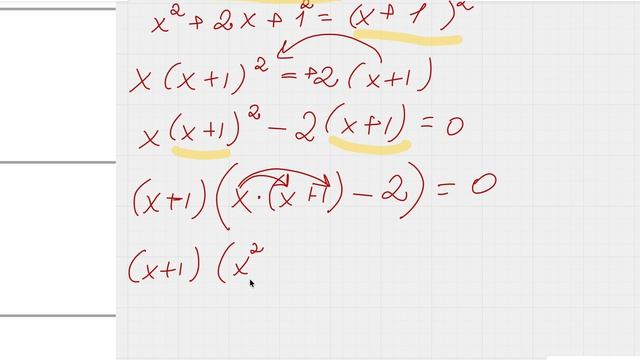 x² + 2x + 1² = (x + 1)²
x(x+1)² = +2(x+1)
x(x+1)² − 2(x+1) = 0
(x+1)(x·(x+1) − 2) = 0
(x+1)(x²